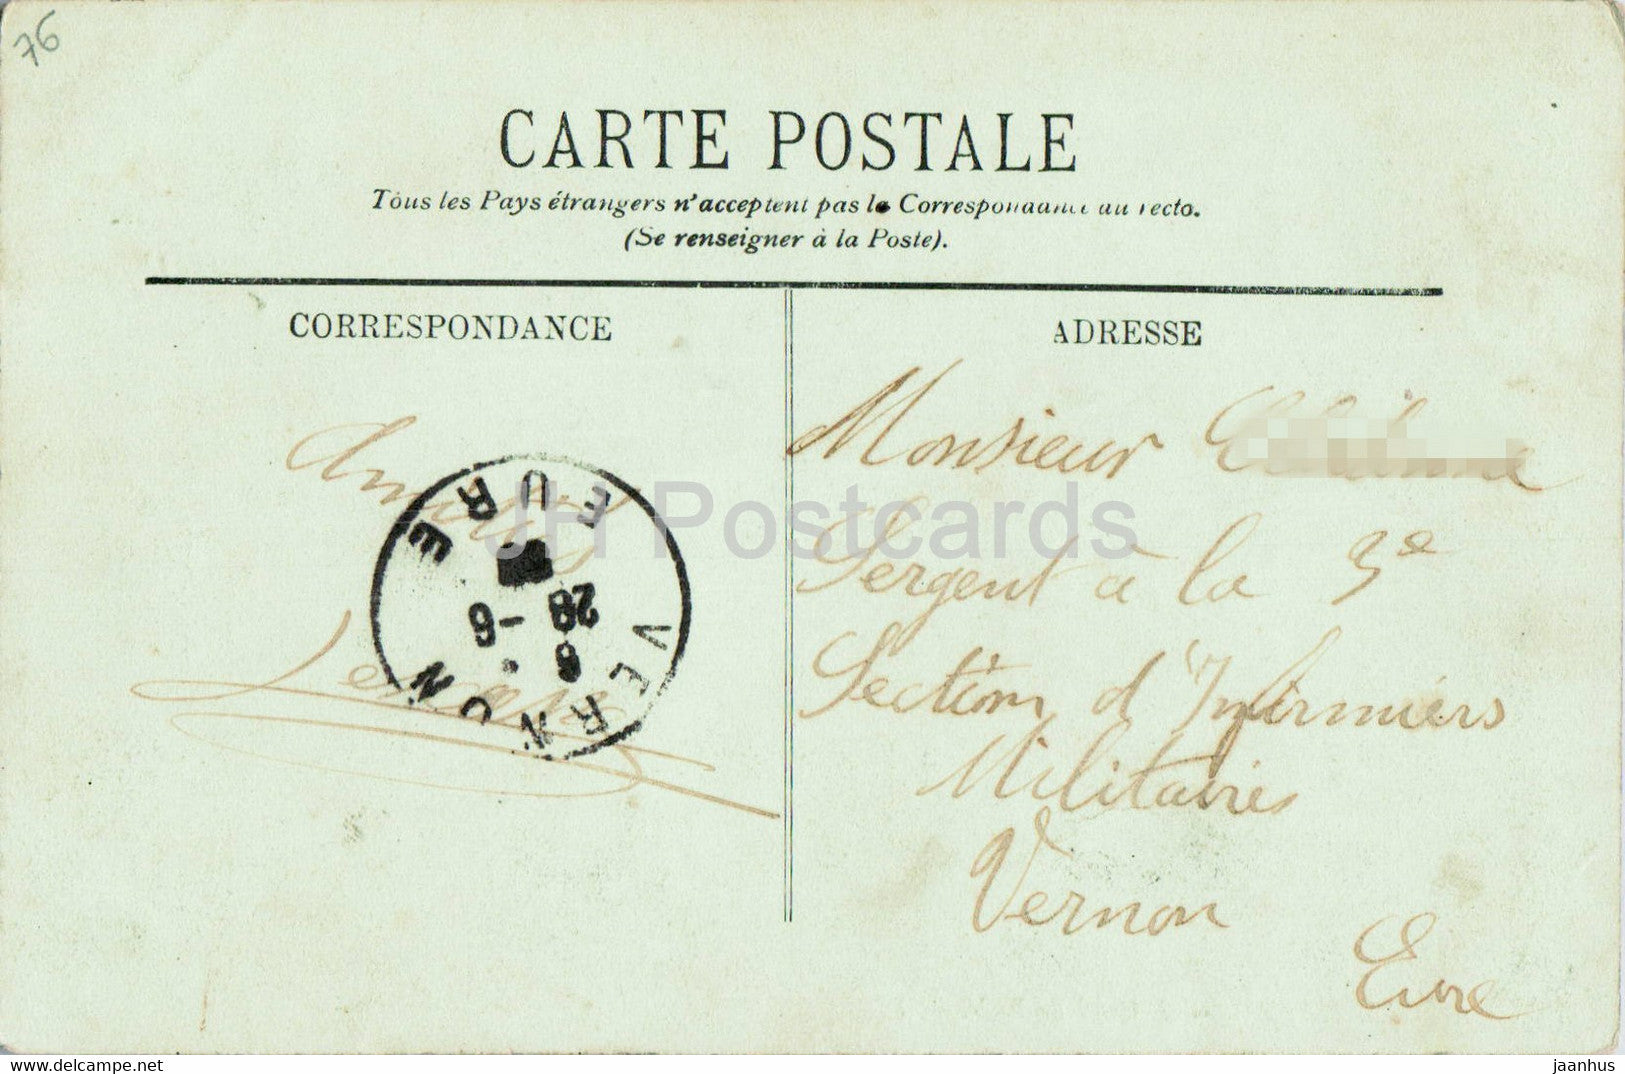 76
CARTE POSTALE
Tous les Pays étrangers n'acceptent pas la Correspondance au recto.
(Se renseigner à la Poste).
CORRESPONDANCE
ADRESSE
Amitiés
VERNON
EURE
8
28 -6
Monsieur
Sergent à la 3e
Section d'Infirmiers
Militaires
Vernon
Eure
JH Postcards
www.delcampe.net
jaanhus